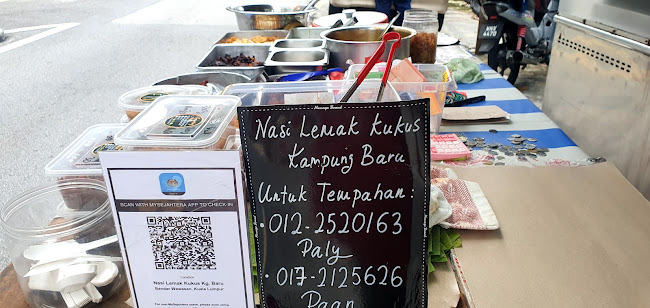 Nasi Lemak Kukus
Kampung Baru
Untuk Tempahan:
• 012-2520163
Paly
• 017-2125626
Paan
SCAN WITH MYSEJAHTERA APP TO CHECK-IN
Location
Nasi Lemak Kukus Kg. Baru
Bandar Wawasan, Kuala Lumpur